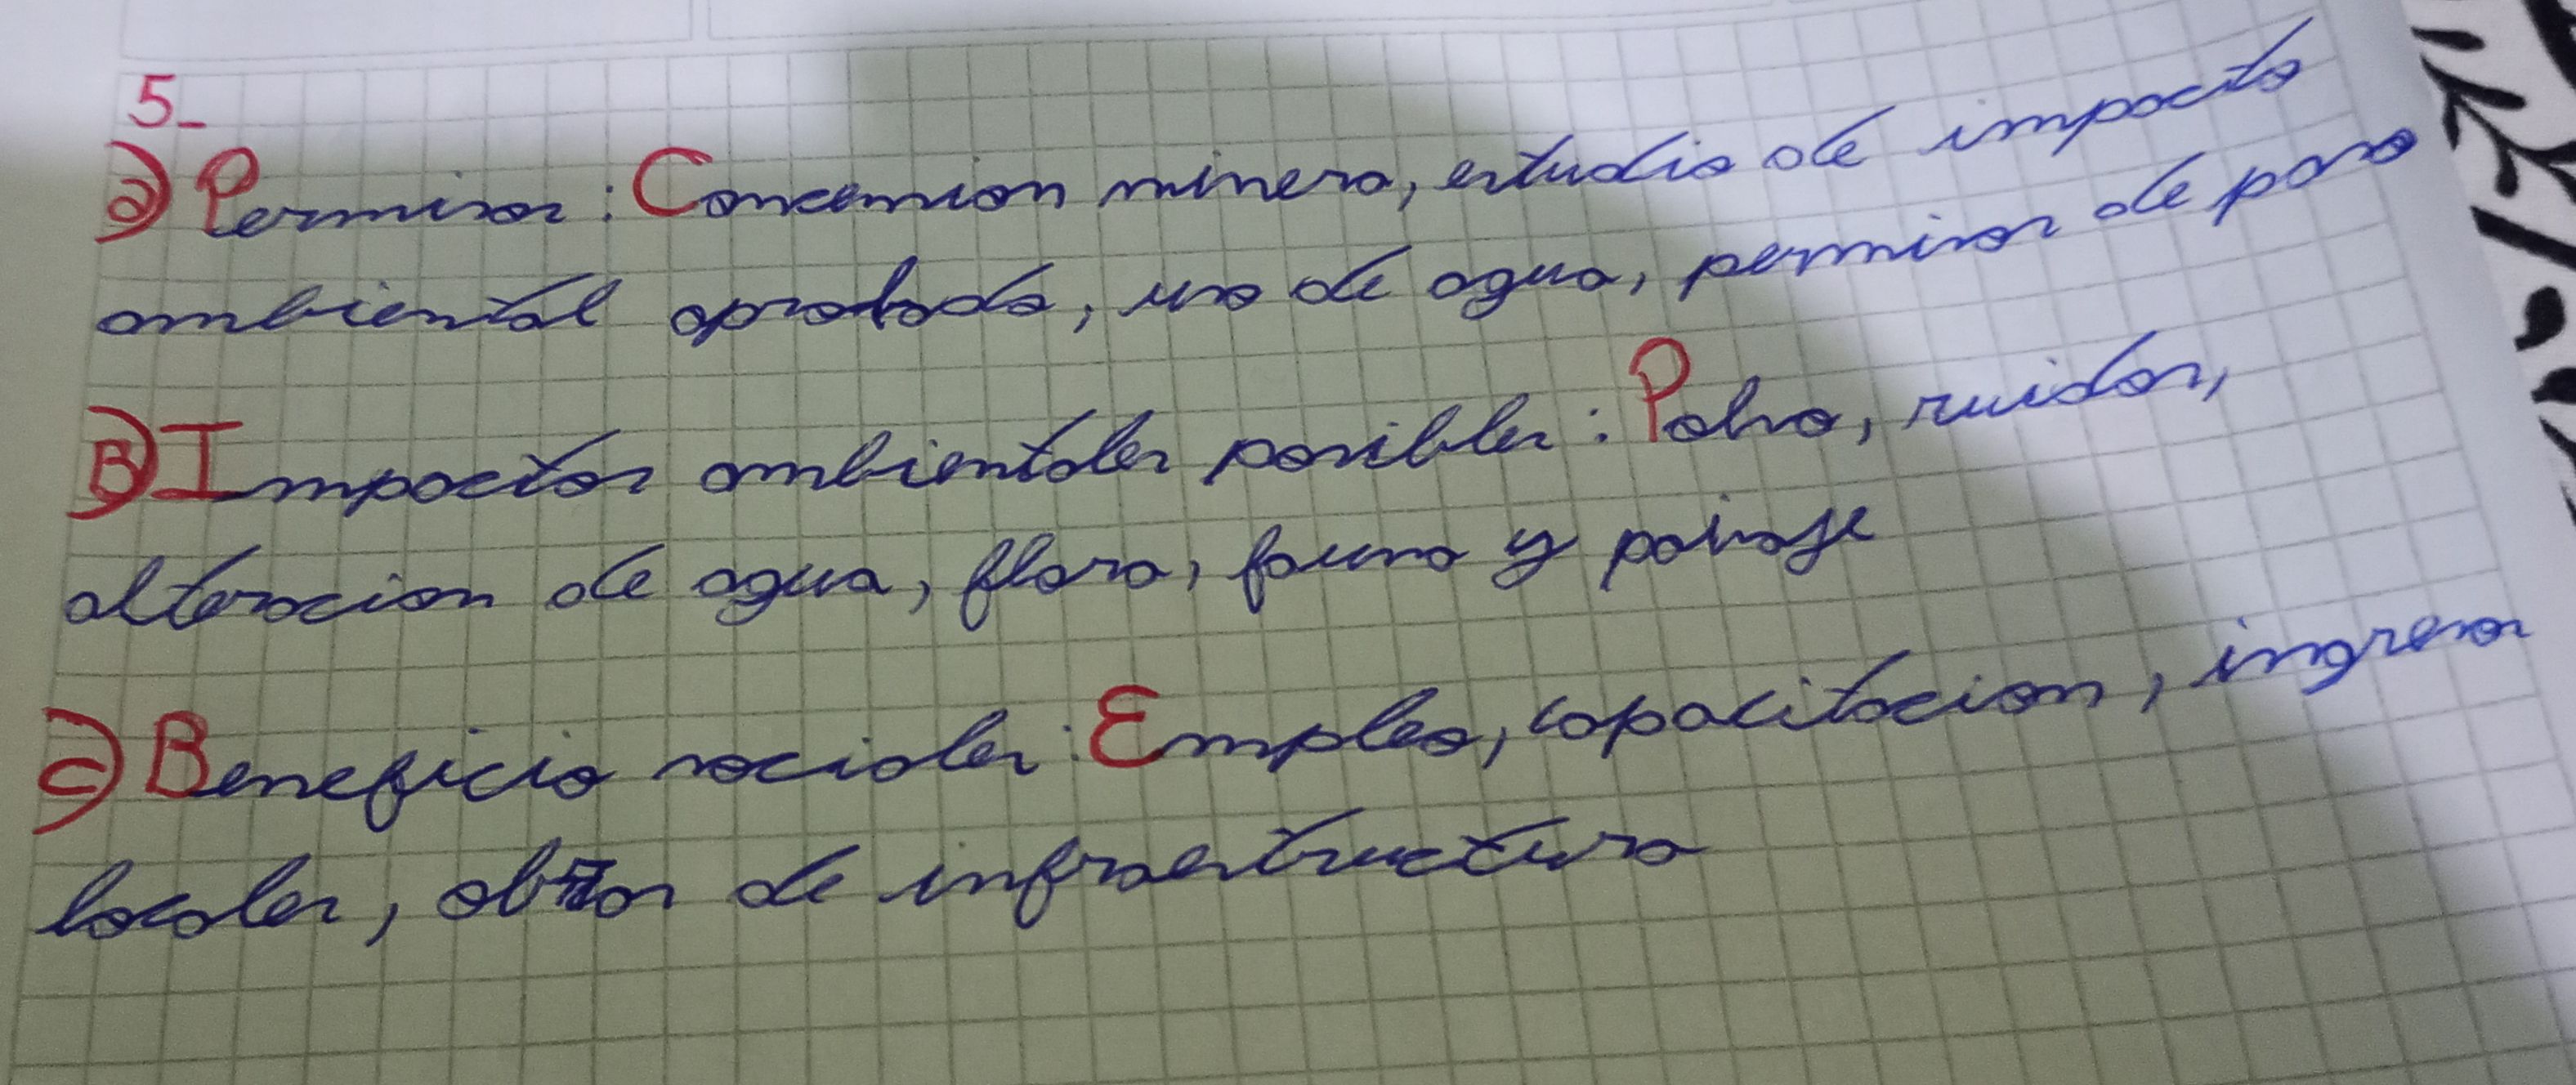 5_
a) Permisos: Concesion minera, estudio de impacto
ambiental aprobado, uso de agua, permisos de paso
B) Impactos ambientales posibles: Polvo, ruidos,
alteracion de agua, flora, fauna y paisaje
c) Beneficio sociales: Empleo, capacitacion, ingresos
locales, obras de infraestructura